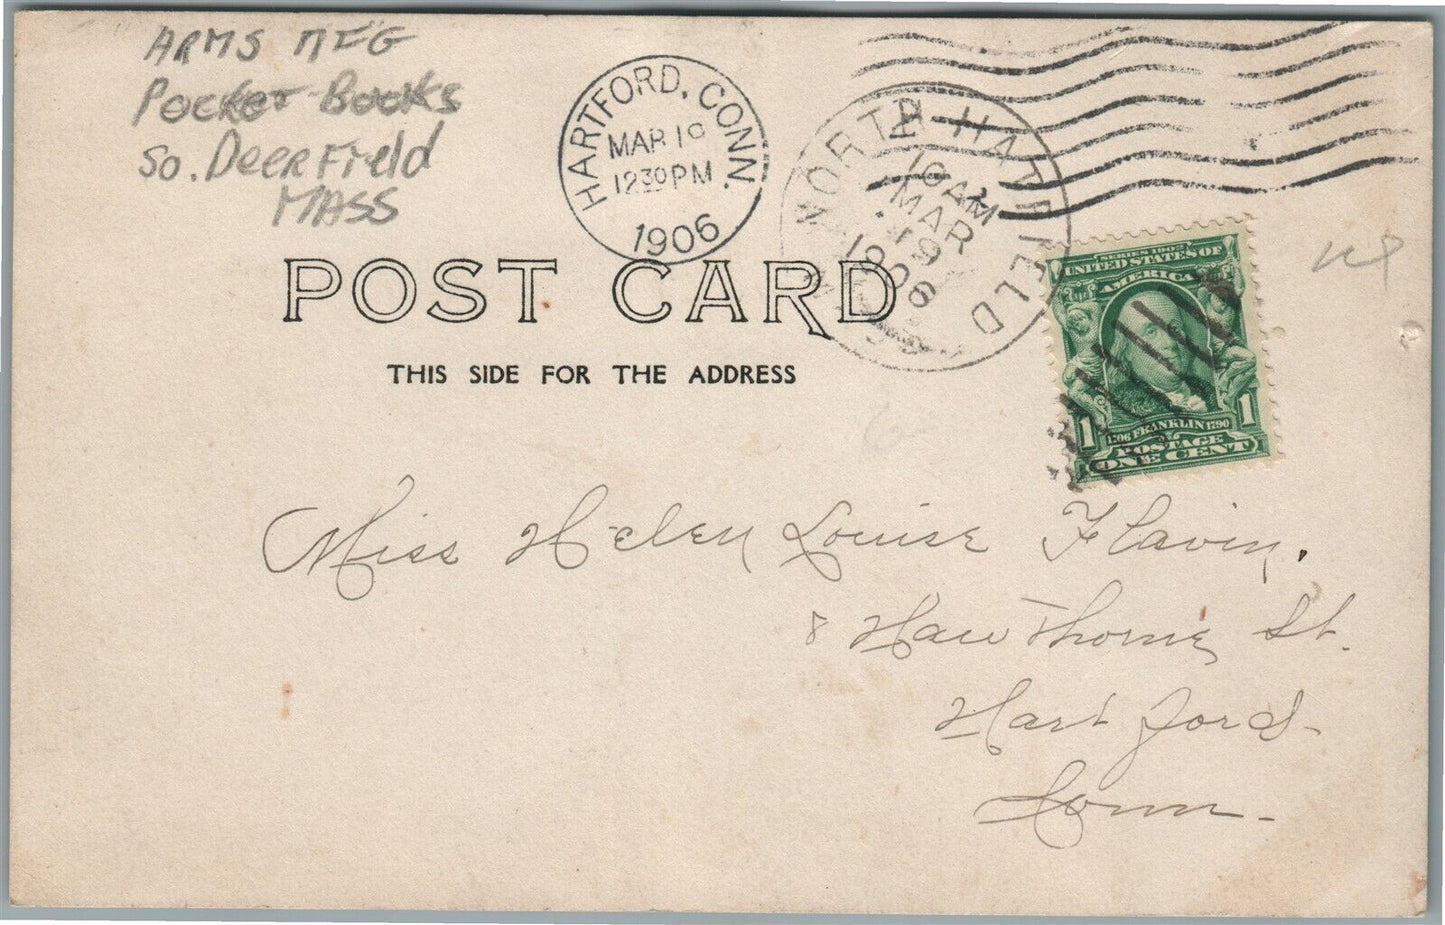 ARMS MFG
Pocket Books
So. DeerField
MASS
HARTFORD, CONN.
MAR 19
1230 PM
1906
NORTH HATFIELD
10 AM
MAR
19
1906
POST CARD
THIS SIDE FOR THE ADDRESS
SERIES 1902
UNITED STATES OF
AMERICA
1 1
1706 FRANKLIN 1790
POSTAGE
ONE CENT
Miss Helen Louise Flavin.
8 Hawthorne St.
Hartford-
Conn-